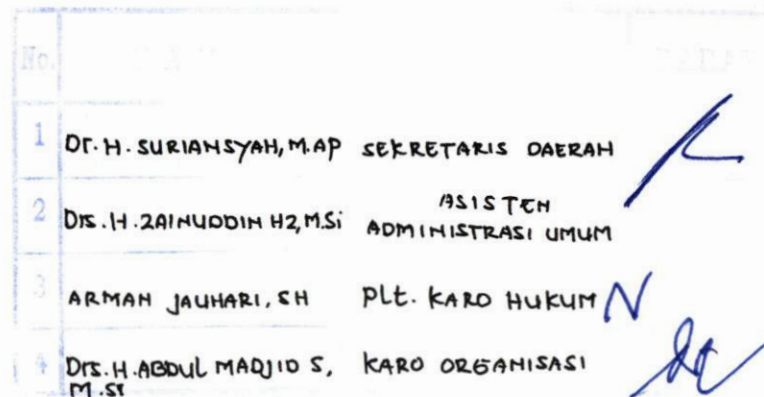 No.
1 Dr. H. SURIANSYAH, M.AP SEKRETARIS DAERAH
2 Drs. H. ZAINUDDIN HZ, M.Si ASISTEN
ADMINISTRASI UMUM
3 ARMAN JAUHARI, SH Plt. KARO HUKUM
4 Drs. H. ABDUL MADJID S, KARO ORGANISASI
M.Si